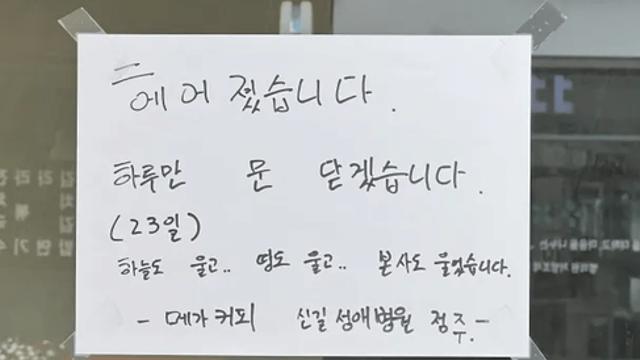 헤어졌습니다.
하루만 문 닫겠습니다.
(23일)
하늘도 울고.. 땅도 울고.. 본사도 울었습니다.
- 메가커피 신길 성애병원 점주.-